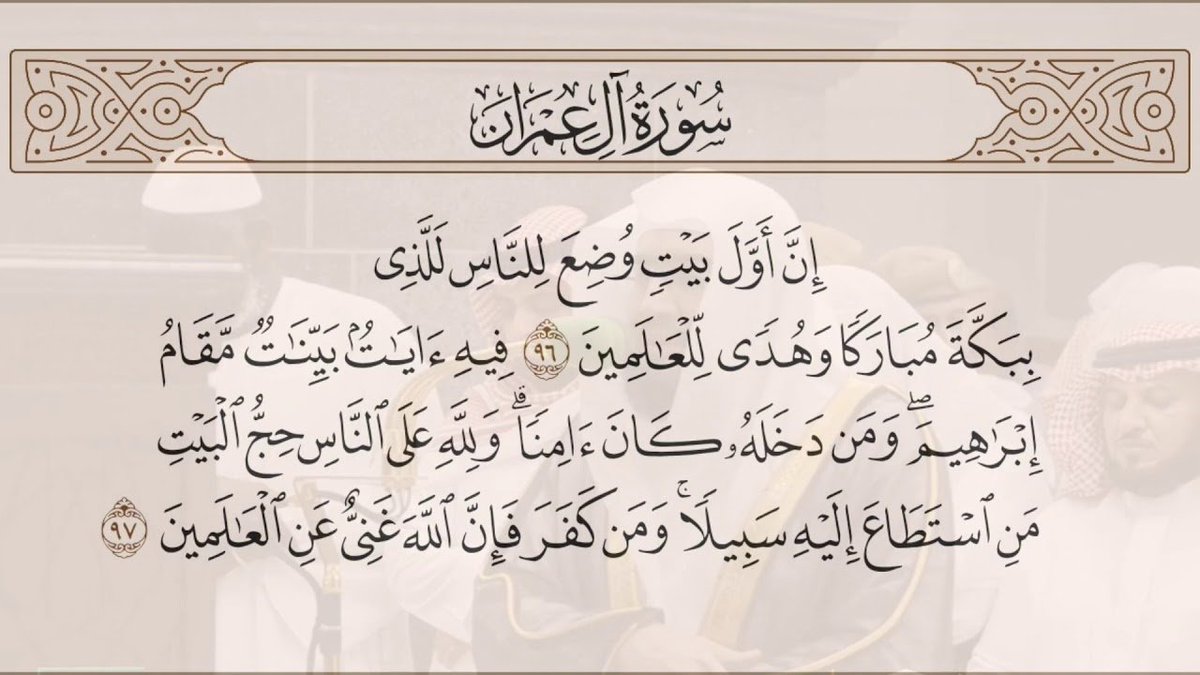 سُورَةُ آلِ عِمْرَان
إِنَّ أَوَّلَ بَيْتٍ وُضِعَ لِلنَّاسِ لَلَّذِى
بِبَكَّةَ مُبَارَكًا وَهُدًى لِّلْعَٰلَمِينَ ٩٦ فِيهِ ءَايَٰتٌۢ بَيِّنَٰتٌ مَّقَامُ
إِبْرَٰهِيمَ ۖ وَمَن دَخَلَهُۥ كَانَ ءَامِنًا ۗ وَلِلَّهِ عَلَى ٱلنَّاسِ حِجُّ ٱلْبَيْتِ
مَنِ ٱسْتَطَاعَ إِلَيْهِ سَبِيلًا ۚ وَمَن كَفَرَ فَإِنَّ ٱللَّهَ غَنِىٌّ عَنِ ٱلْعَٰلَمِينَ ٩٧